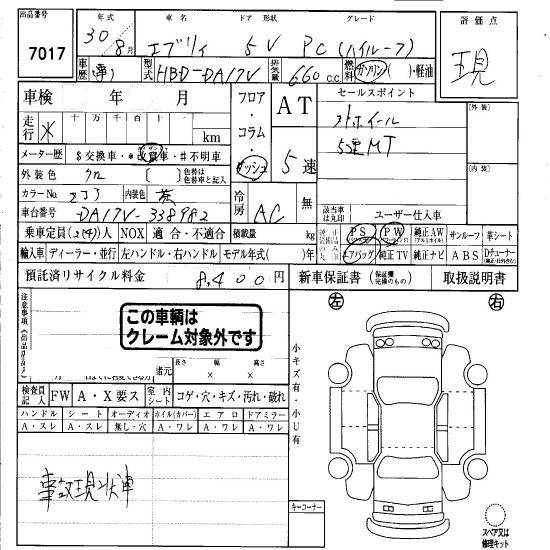 出品番号 年式 車名 ドア 形状 グレード 評価点
7017 30年8月 エブリィ 5V PC(ハイルーフ) 現
車歴 型式 HBD-DA17V 排気量 660c.c. 燃料 ガソリン( )・軽油
車検 年 月 フロア・コラム・ダッシュ AT セールスポイント 外装
走行 十万千百十一 km 5速 外ホイール
5速MT
メーター歴 $交換車・*改ざん車・#不明車 内装
外装色 〔 〕 色替は色替車と記入
カラーNo 内装色 茶 冷房 AC 無 該当車は丸印 ユーザー仕入車
車台番号 DA17V-338982
乗車定員(2(4))人 NOX 適合・不適合 積載量 kg PS PW 純正AW(アルミホイル) サンルーフ 革シート
輸入車 ディーラー・並行 左ハンドル・右ハンドル モデル年式( )年 エアバッグ 純正TV 純正ナビ ABS Dチューナー
預託済リサイクル料金 8,400円 新車保証書(保証欄完備のもの) 取扱説明書
注意事項 左 右
この車輌は
クレーム対象外です
諸元 長さ 幅 高さ
× ×
小キズ有・小U有
検査員記入 FW A・X要ス 室内シート コゲ・穴・キズ・汚れ・破れ
ハンドル シート オーディオ ホイル(カバー) エアロ ドアミラー
A・スレ A・スレ 無し・穴 A・ワレ A・ワレ A・ワレ
事故現状車
キーコーナー
スペア又は
修理キット